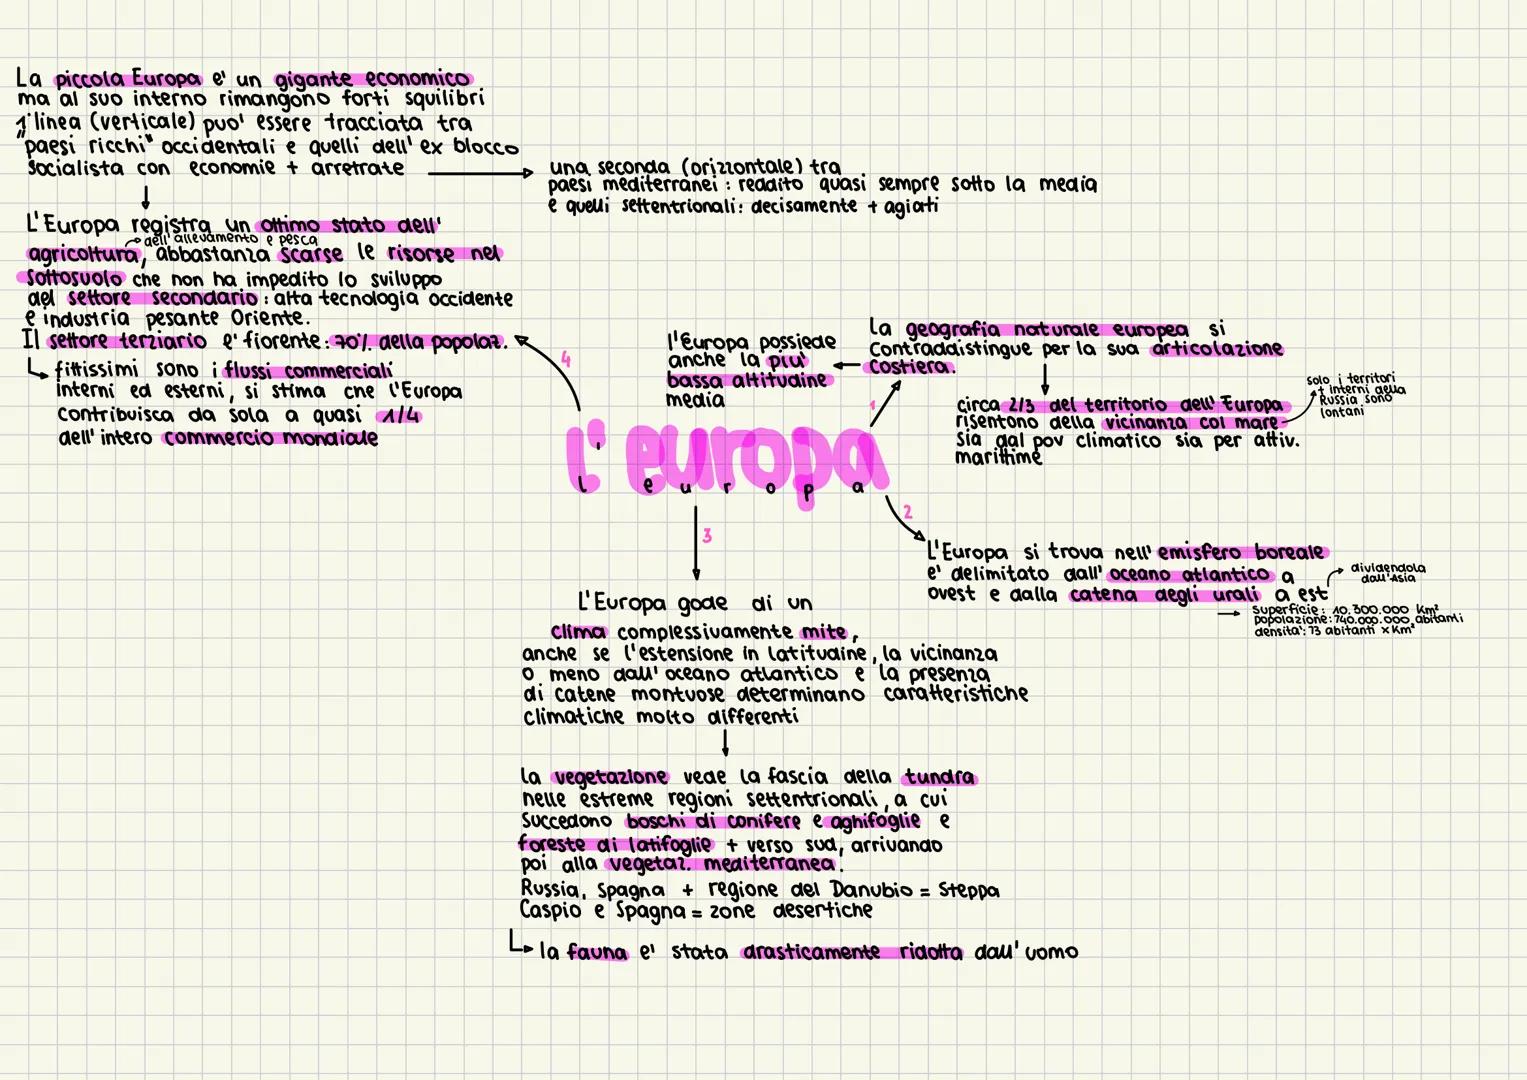 La piccola Europa e' un gigante economico
ma al suo interno rimangono forti squilibri
1ª linea (verticale) puo' essere tracciata tra
"paesi ricchi" occidentali e quelli dell' ex blocco
socialista con economie + arretrate
una seconda (orizzontale) tra
paesi mediterranei: reddito quasi sempre sotto la media
e quelli settentrionali: decisamente + agiati
L'Europa registra un ottimo stato dell'
dell'allevamento e pesca
agricoltura, abbastanza scarse le risorse nel
sottosuolo che non ha impedito lo sviluppo
del settore secondario: alta tecnologia occidente
e industria pesante Oriente.
Il settore terziario e' fiorente: 70% della popolaz.
fittissimi sono i flussi commerciali
interni ed esterni, si stima che l'Europa
contribuisca da sola a quasi 1/4
dell' intero commercio mondiale
4
l'Europa possiede
anche la piu'
bassa altitudine
media
La geografia naturale europea si
contraddistingue per la sua articolazione
costiera.
1
circa 2/3 del territorio dell' Europa
risentono della vicinanza col mare
sia dal pov climatico sia per attiv.
marittime
solo i territori
+ interni della
Russia sono
lontani
l'europa
l' e u r o p a
2
L'Europa si trova nell' emisfero boreale
e' delimitato dall' oceano atlantico a
ovest e dalla catena degli urali a est
dividendola
dall'Asia
superficie: 10.300.000 Km²
popolazione: 740.000.000 abitanti
densita': 73 abitanti x Km²
3
L'Europa gode di un
clima complessivamente mite,
anche se l'estensione in latitudine, la vicinanza
o meno dall' oceano atlantico e la presenza
di catene montuose determinano caratteristiche
climatiche molto differenti
la vegetazione vede la fascia della tundra
nelle estreme regioni settentrionali, a cui
succedono boschi di conifere e aghifoglie e
foreste di latifoglie + verso sud, arrivando
poi alla vegetaz. mediterranea.
Russia, Spagna + regione del Danubio = Steppa
Caspio e Spagna = zone desertiche
la fauna e' stata drasticamente ridotta dall' uomo